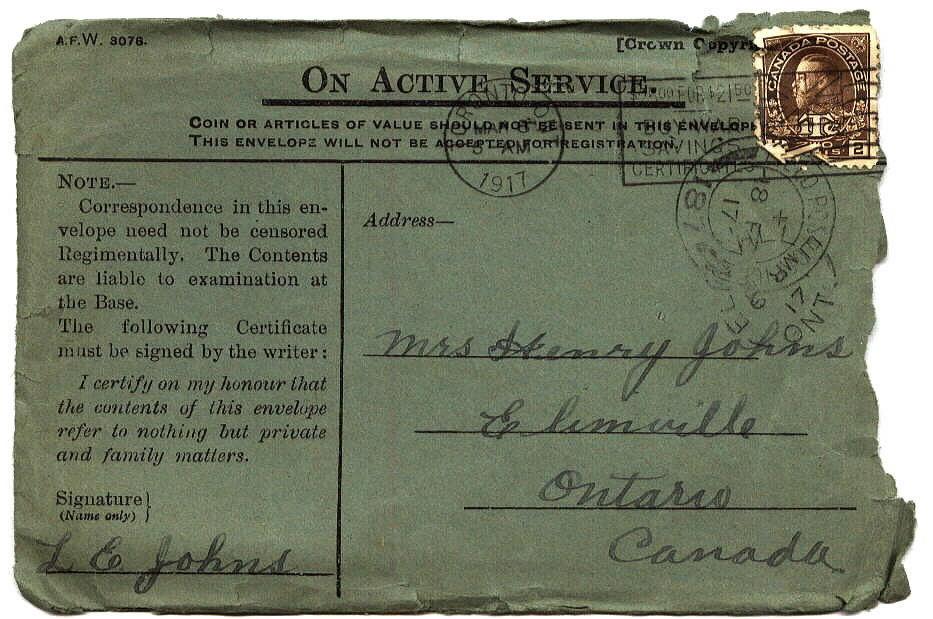 A.F.W. 3076.
[Crown Copyri
ON ACTIVE SERVICE.
COIN OR ARTICLES OF VALUE SHOULD NOT BE SENT IN THIS ENVELOPE
THIS ENVELOPE WILL NOT BE ACCEPTED FOR REGISTRATION.
CANADA POSTAGE
2
TORONTO
MAR 8
AM
1917
BUY WAR
SAVINGS
CERTIFICATES
NOTE.—
Correspondence in this en-
velope need not be censored
Regimentally. The Contents
are liable to examination at
the Base.
The following Certificate
must be signed by the writer:
I certify on my honour that
the contents of this envelope
refer to nothing but private
and family matters.
Signature}
(Name only)
L E Johns
Address—
Mrs Henry Johns
Elimville
Ontario
Canada